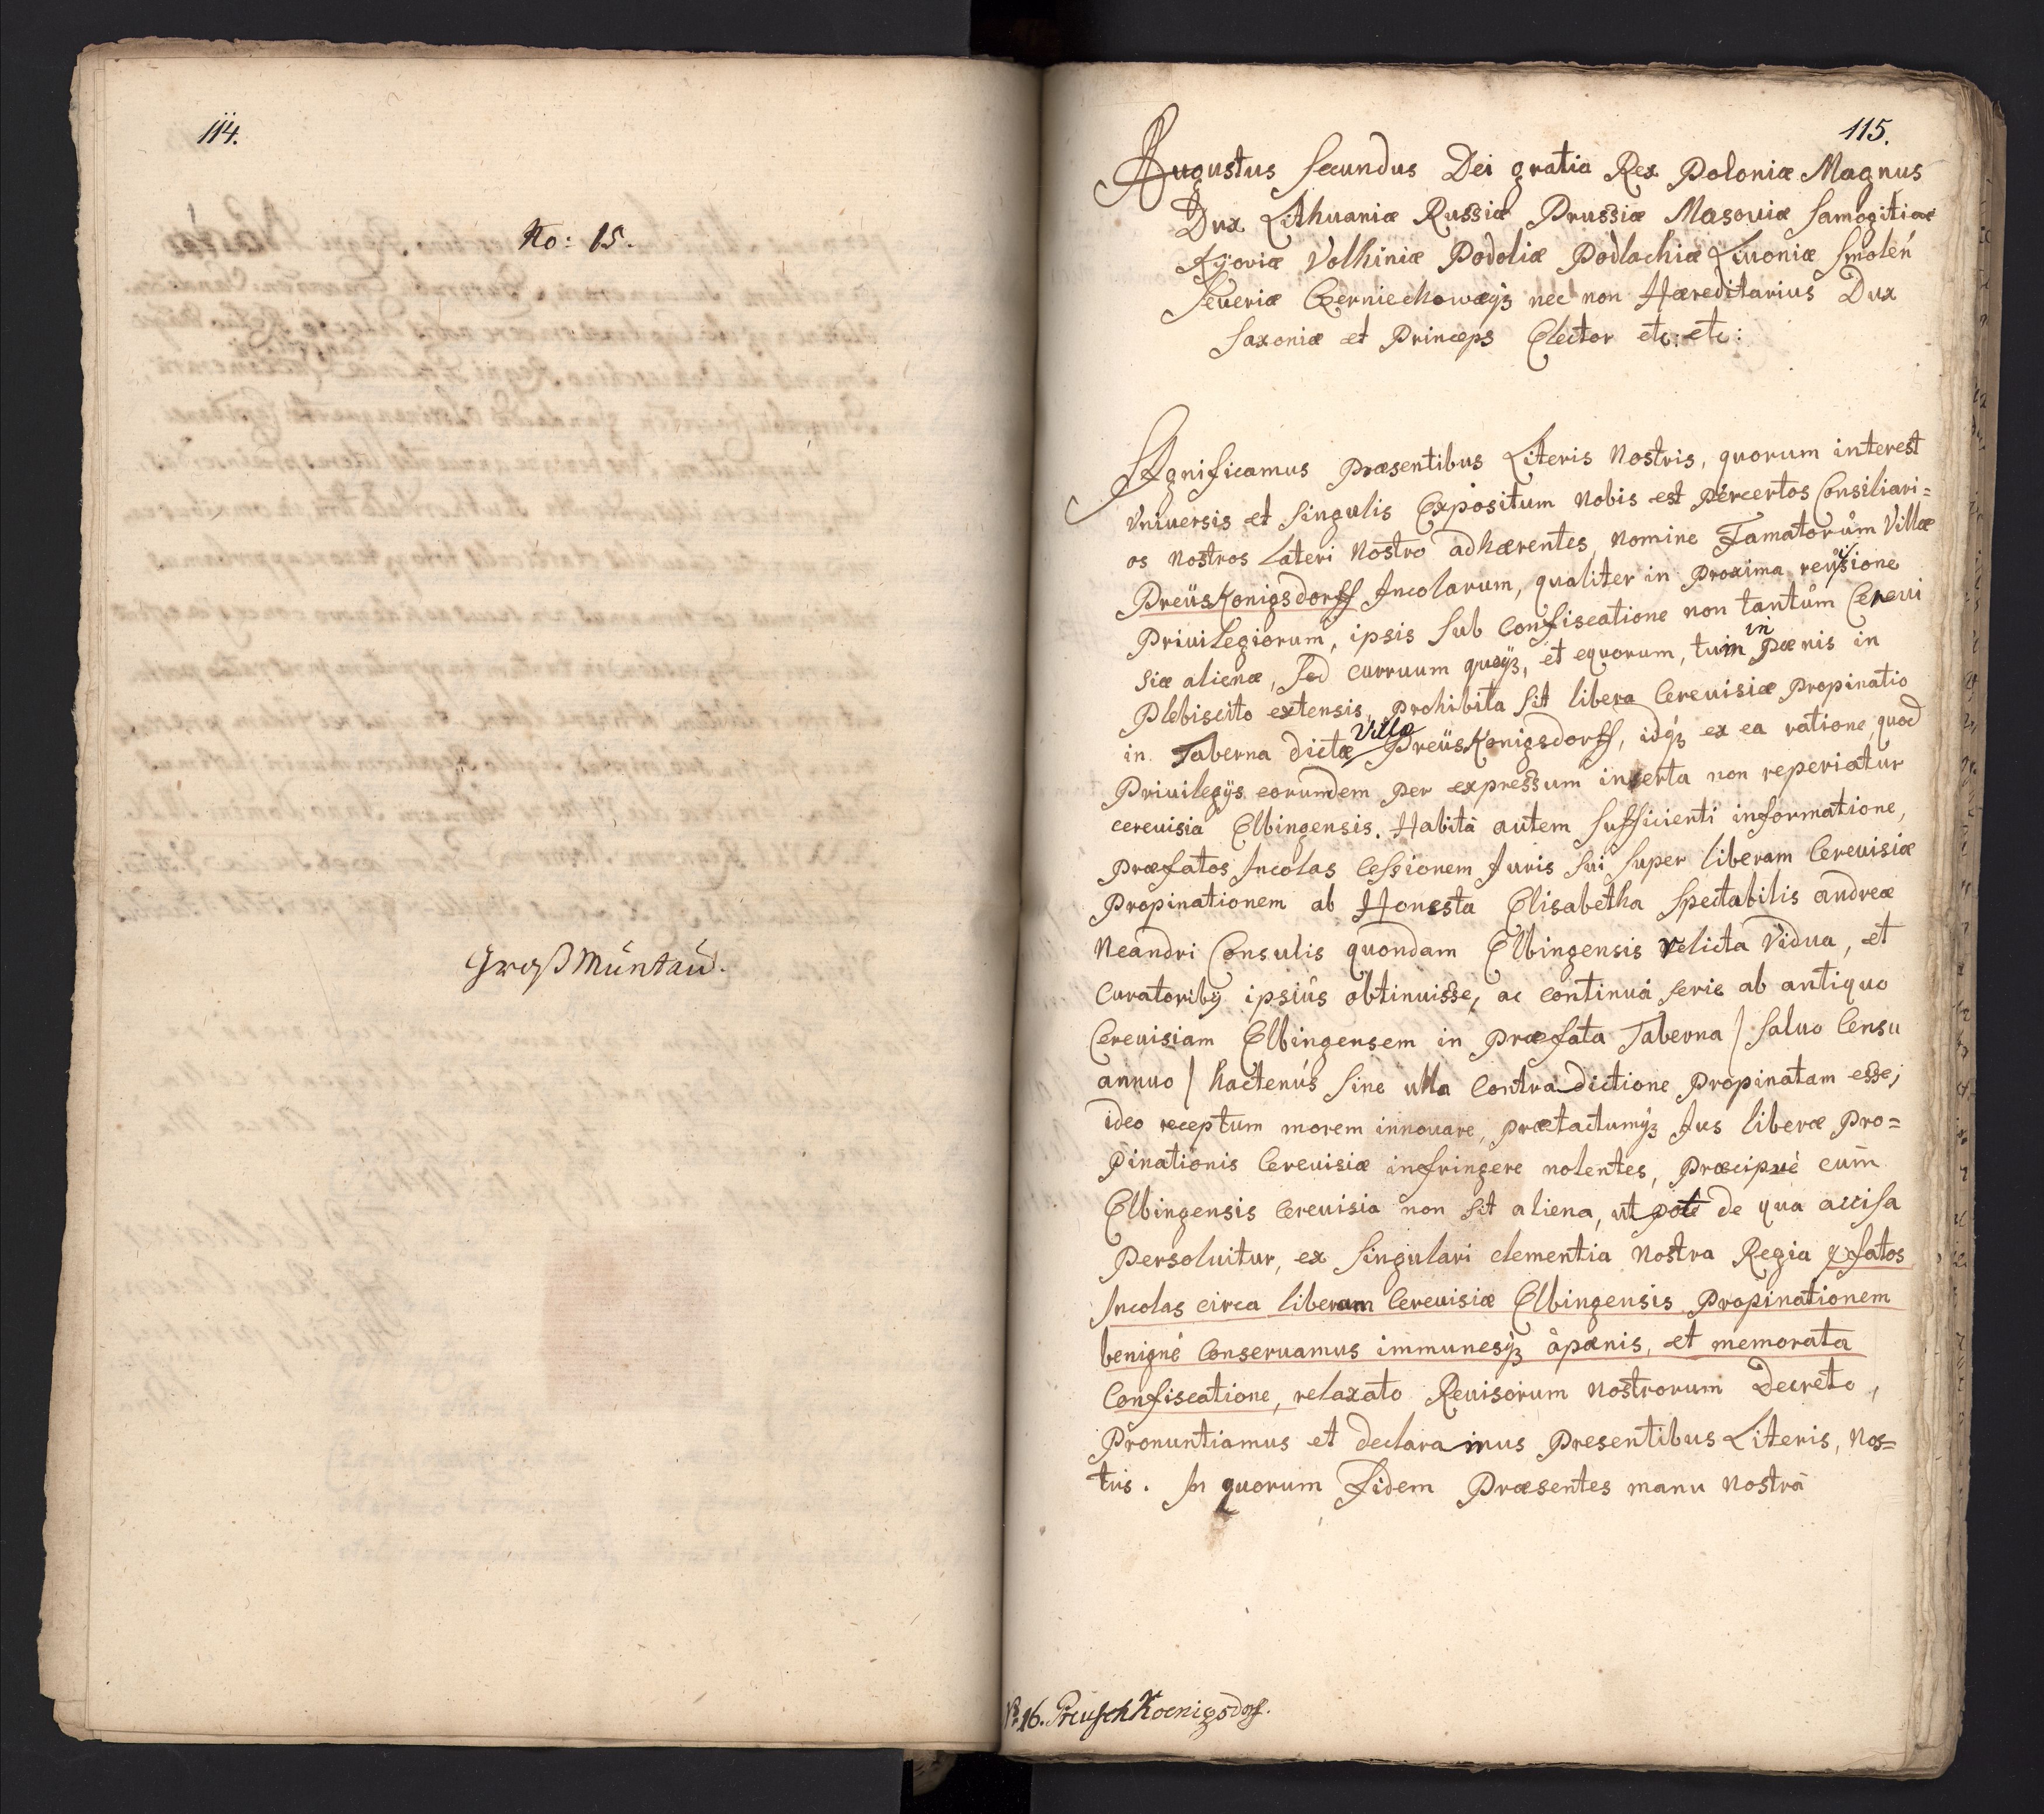 114.
No: 15.
Groß Müntau.
115.
Augustus Secundus Dei gratia Rex Poloniæ Magnus
Dux Lithuaniæ Russiæ Prussiæ Masoviæ Samogitiæ
Kÿoviæ Volhiniæ Podoliæ Podlachiæ Livoniæ Smolen
Severiæ Czerniechowæqȝ nec non Hæreditarius Dux
Saxoniæ et Princeps Elector etc: etc:
Significamus Præsentibus Literis Nostris, quorum interest
Vniuersis et Singulis Expositum Nobis est Per certos Consiliari=
os Nostros Lateri Nostro adhærentes, nomine Famatorum Villæ
Preüskonigsdorff Incolarum, qualiter in Proxima revisione
Priuilegiorum, ipsis Sub Confiscatione non tantum Cereui
siæ alienæ, Sed curruum quoqȝ, et equorum, tum in Pænis in
Plebiscito extensis, Prohibita Sit libera Cereuisiæ Propinatio
in Taberna dictæ Villæ Preüskonigsdorff, idqȝ ex ea ratione, quod
Priuilegÿs eorumdem Per expressum inserta non reperiatur
cereuisia Elbingensis. Habitâ autem Sufficienti informatione,
Præfatos Incolas Cessionem Juris Sui Super liberam Cereuisiæ
Propinationem ab Honesta Elisabetha Spectabilis Andreæ
Neandri Consulis quondam Elbingensis relicta Vidua, et
Curatoribꝰ ipsius obtinuisse, ac continuâ Serie ab antiquo
Cereuisiam Elbingensem in Præfata Taberna / Saluo Censu
annuo / hactenus Sine ulla Contradictione Propinatam esse;
ideo receptum morem innouare, prætactumqȝ Jus liberæ Pro=
pinationis Cereuisiæ infringere nolentes, Præcipuè cum
Elbingensis Cereuisia non Sit aliena, ut pote de qua accisa
Persoluitur, ex Singulari clementia Nostra Regia pfatos
Incolas circa liberam Cereuisiæ Elbingensis Propinationem
benignè Conseruamus immunesqȝ à pænis, et memorata
Confiscatione, relaxato Reuisorum Nostrorum Decreto,
Pronuntiamus et declaramus Presentibus Literis, Nos=
tris. In quorum Fidem Præsentes manu Nostrâ
No. 16. Preusch Koenigsdorf.